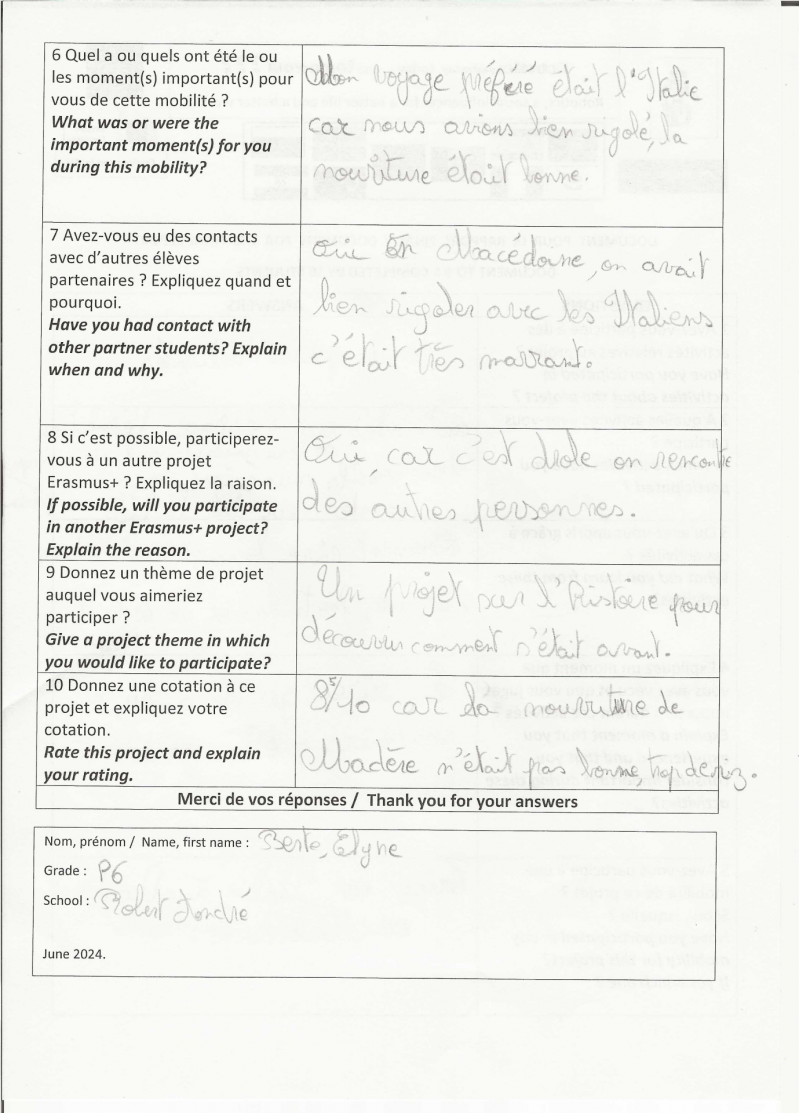 6 Quel a ou quels ont été le ou
les moment(s) important(s) pour
vous de cette mobilité ?
What was or were the
important moment(s) for you
during this mobility?
Mon voyage préféré était l'Italie
car nous avions bien rigolé, la
nouriture était bonne.
7 Avez-vous eu des contacts
avec d'autres élèves
partenaires ? Expliquez quand et
pourquoi.
Have you had contact with
other partner students? Explain
when and why.
Oui En Macédoine, on avait
bien rigoler avec les Italiens
c'était très marrant.
8 Si c'est possible, participerez-
vous à un autre projet
Erasmus+ ? Expliquez la raison.
If possible, will you participate
in another Erasmus+ project?
Explain the reason.
Oui, car c'est drole on rencontre
des autres personnes.
9 Donnez un thème de projet
auquel vous aimeriez
participer ?
Give a project theme in which
you would like to participate?
Un projet sur l'histoire pour
découvrir comment s'était avant.
10 Donnez une cotation à ce
projet et expliquez votre
cotation.
Rate this project and explain
your rating.
8,5/10 car la nourriture de
Madère n'était pas bonne, trop de riz.
Merci de vos réponses / Thank you for your answers
Nom, prénom / Name, first name : Berte, Elyne
Grade : P6
School : Robert André
June 2024.